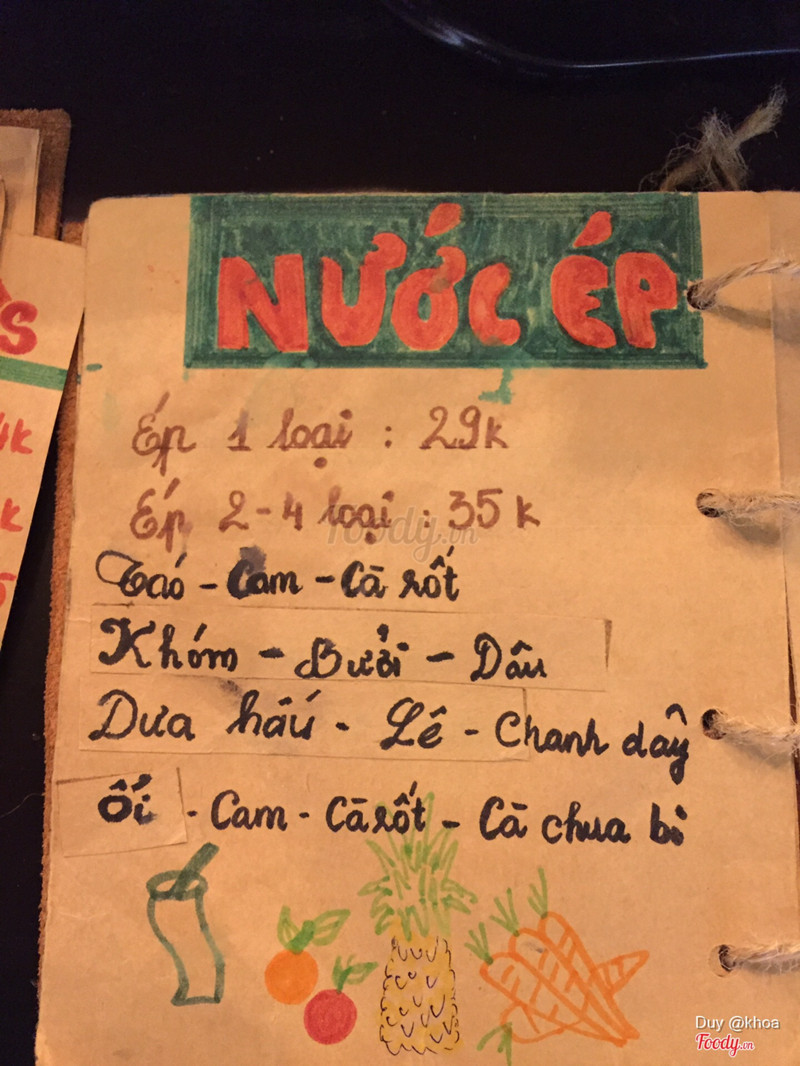 NƯỚC ÉP
Ép 1 loại : 29k
Ép 2-4 loại : 35k
Táo - Cam - Cà rốt
Khóm - Bưởi - Dâu
Dưa hấu - Lê - Chanh dây
Ổi - Cam - Cà rốt - Cà chua bi
S
4k
k
5
foody.vn
Duy @khoa
Foody.vn